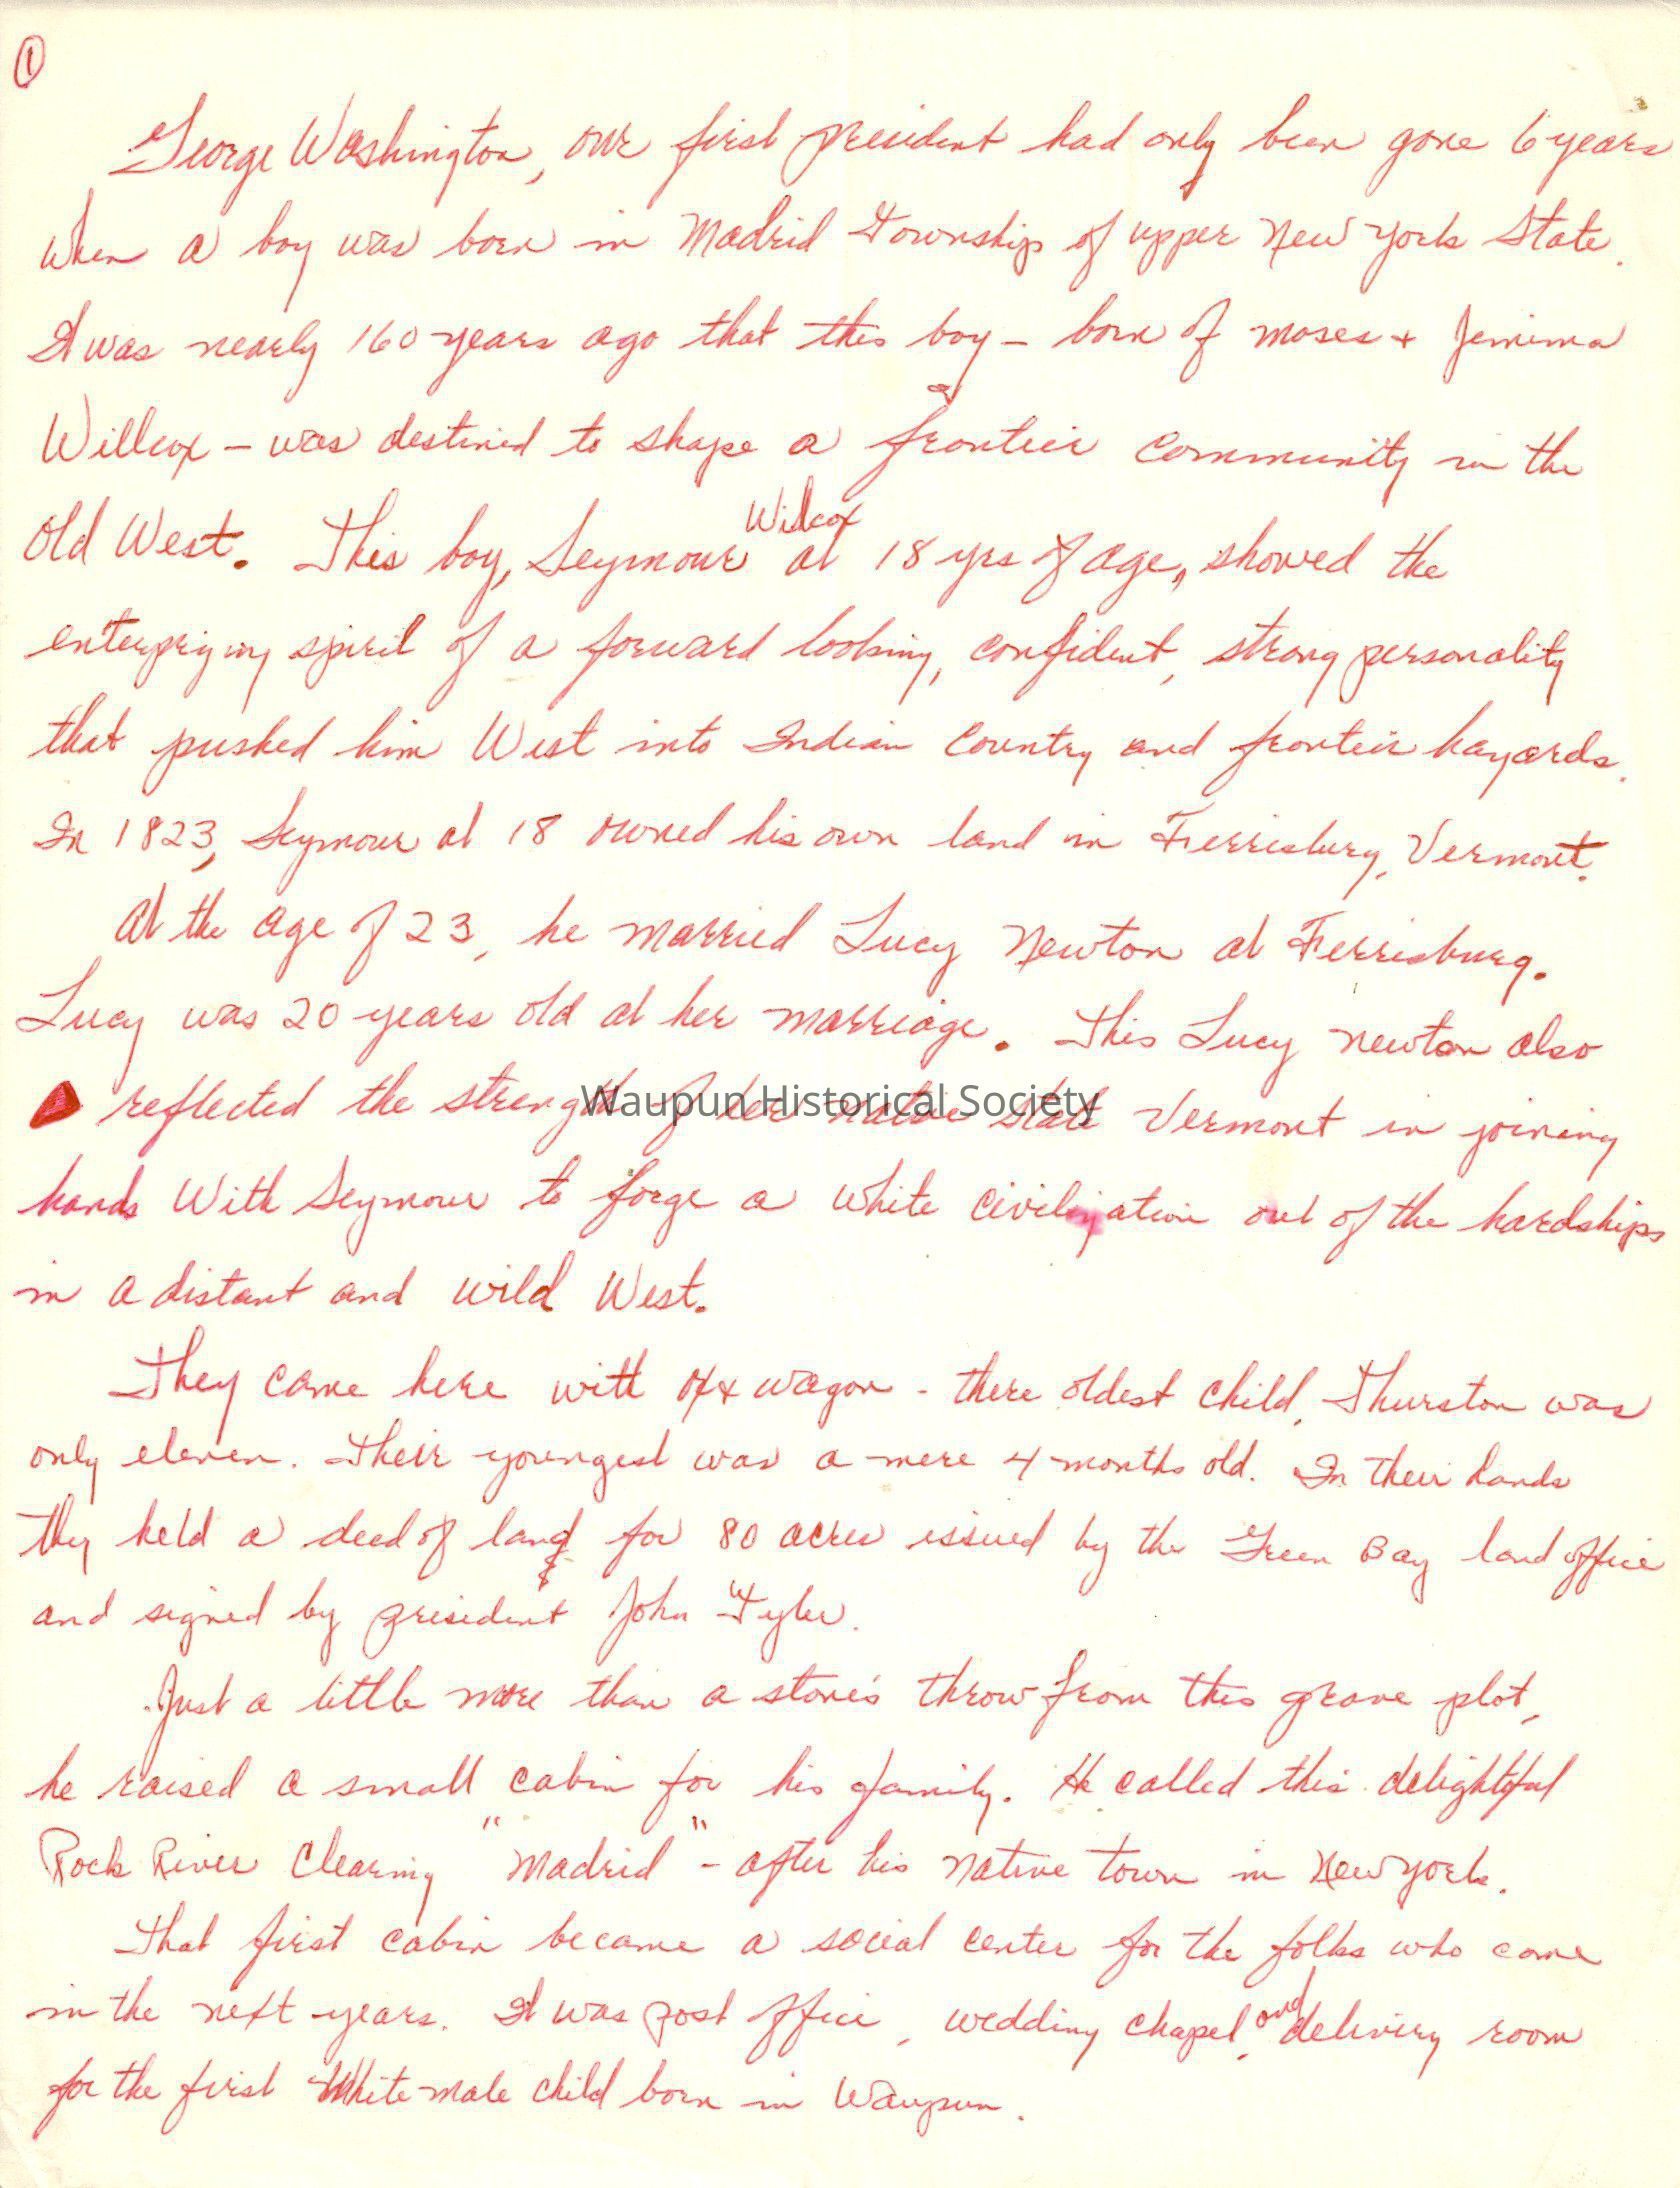 ①
George Washington, our first president had only been gone 6 years
when a boy was born in Madrid Township of upper New York State.
It was nearly 160 years ago that this boy – born of Moses + Jemima
Willcox – was destined to shape a frontier community in the
Old West. This boy, Seymour Wilcox at 18 yrs of age, showed the
enterprizing spirit of a forward looking, confident, strong personality
that pushed him West into Indian Country and frontier hazards.
In 1823, Seymour at 18 owned his own land in Ferrisburg, Vermont.
At the age of 23, he married Lucy Newton at Ferrisburg.
Lucy was 20 years old at her marriage. This Lucy Newton also
reflected the strength of her native state Vermont in joining
Waupun Historical Society
hands with Seymour to forge a white civilization out of the hardships
in a distant and wild West.
They came here with ox + wagon - there oldest child, Thurston was
only eleven. Their youngest was a mere 4 months old. In their hands
they held a deed of land for 80 acres issued by the Green Bay land office
and signed by president John Tyler.
Just a little more than a stone's throw from this grave plot,
he raised a small cabin for his family. He called this delightful
Rock River Clearing "Madrid" – after his native town in New York.
That first cabin became a social center for the folks who came
in the next years. It was post office, wedding chapel, and delivery room
for the first White male child born in Waupun.